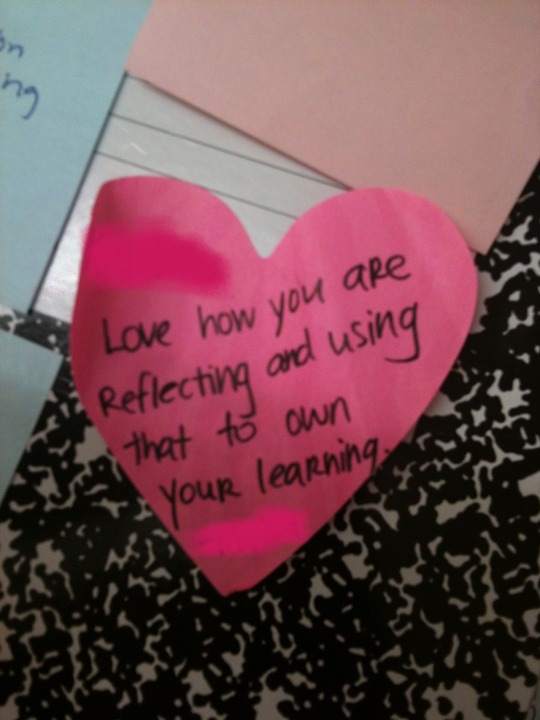 on
ng
Love how you are
Reflecting and using
that to own
your learning.